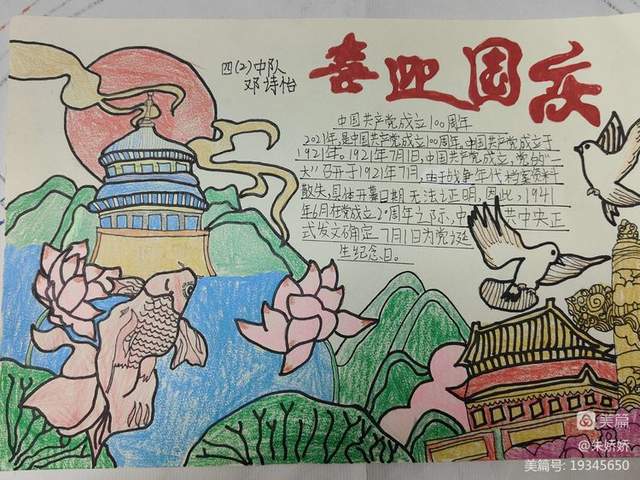 四(2)中队
邓诗怡
喜迎国庆
中国共产党成立100周年
2021年,是中国共产党成立100周年,中国共产党成立于
1921年。1921年7月1日,中国共产党成立,党的"一
大"召开于1921年7月,由于战争年代档案资料
散失,具体开幕日期无法证明,因此,1941
年6月在党成立20周年之际,中共中央正
式发文确定7月1日为党诞
生纪念日。
美篇
@朱娇娇
美篇号: 19345650